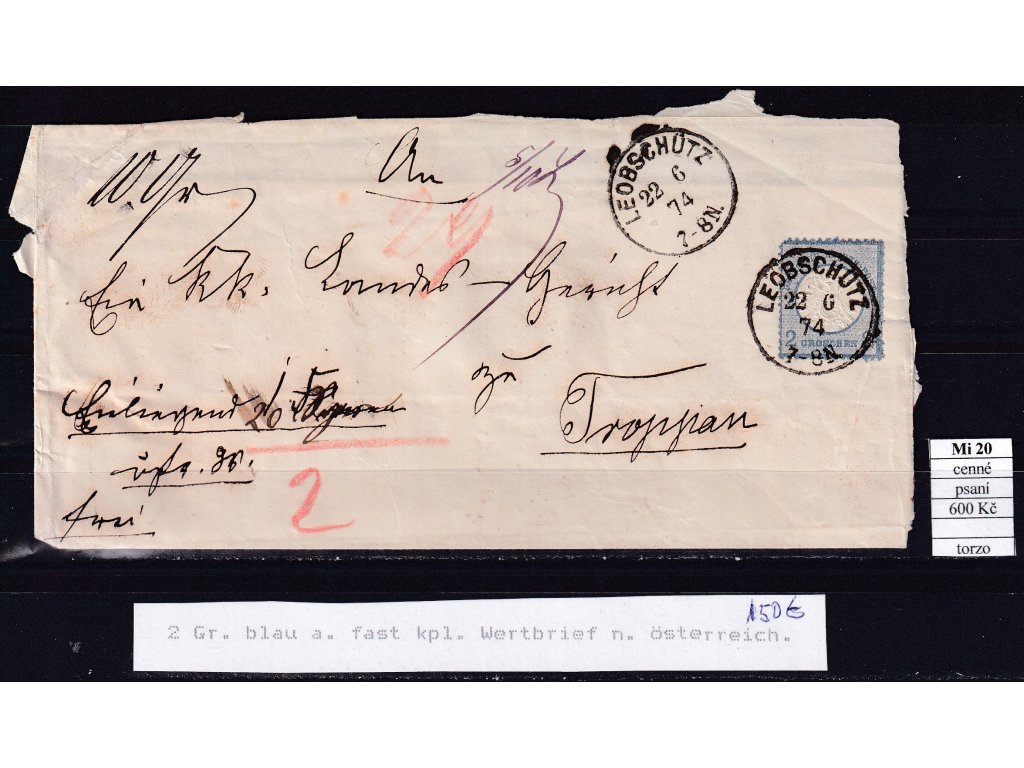 An
LEOBSCHÜTZ
22 6
74
7-8N.
Ein kk. Landes-Gericht
LEOBSCHÜTZ
22 6
74
7-8N.
2 GROSCHEN 2
zu
Troppau
Einliegend
2
frei
Mi 20
cenné
psaní
600 Kč
torzo
150€
2 Gr. blau a. fast kpl. Wertbrief n. österreich.